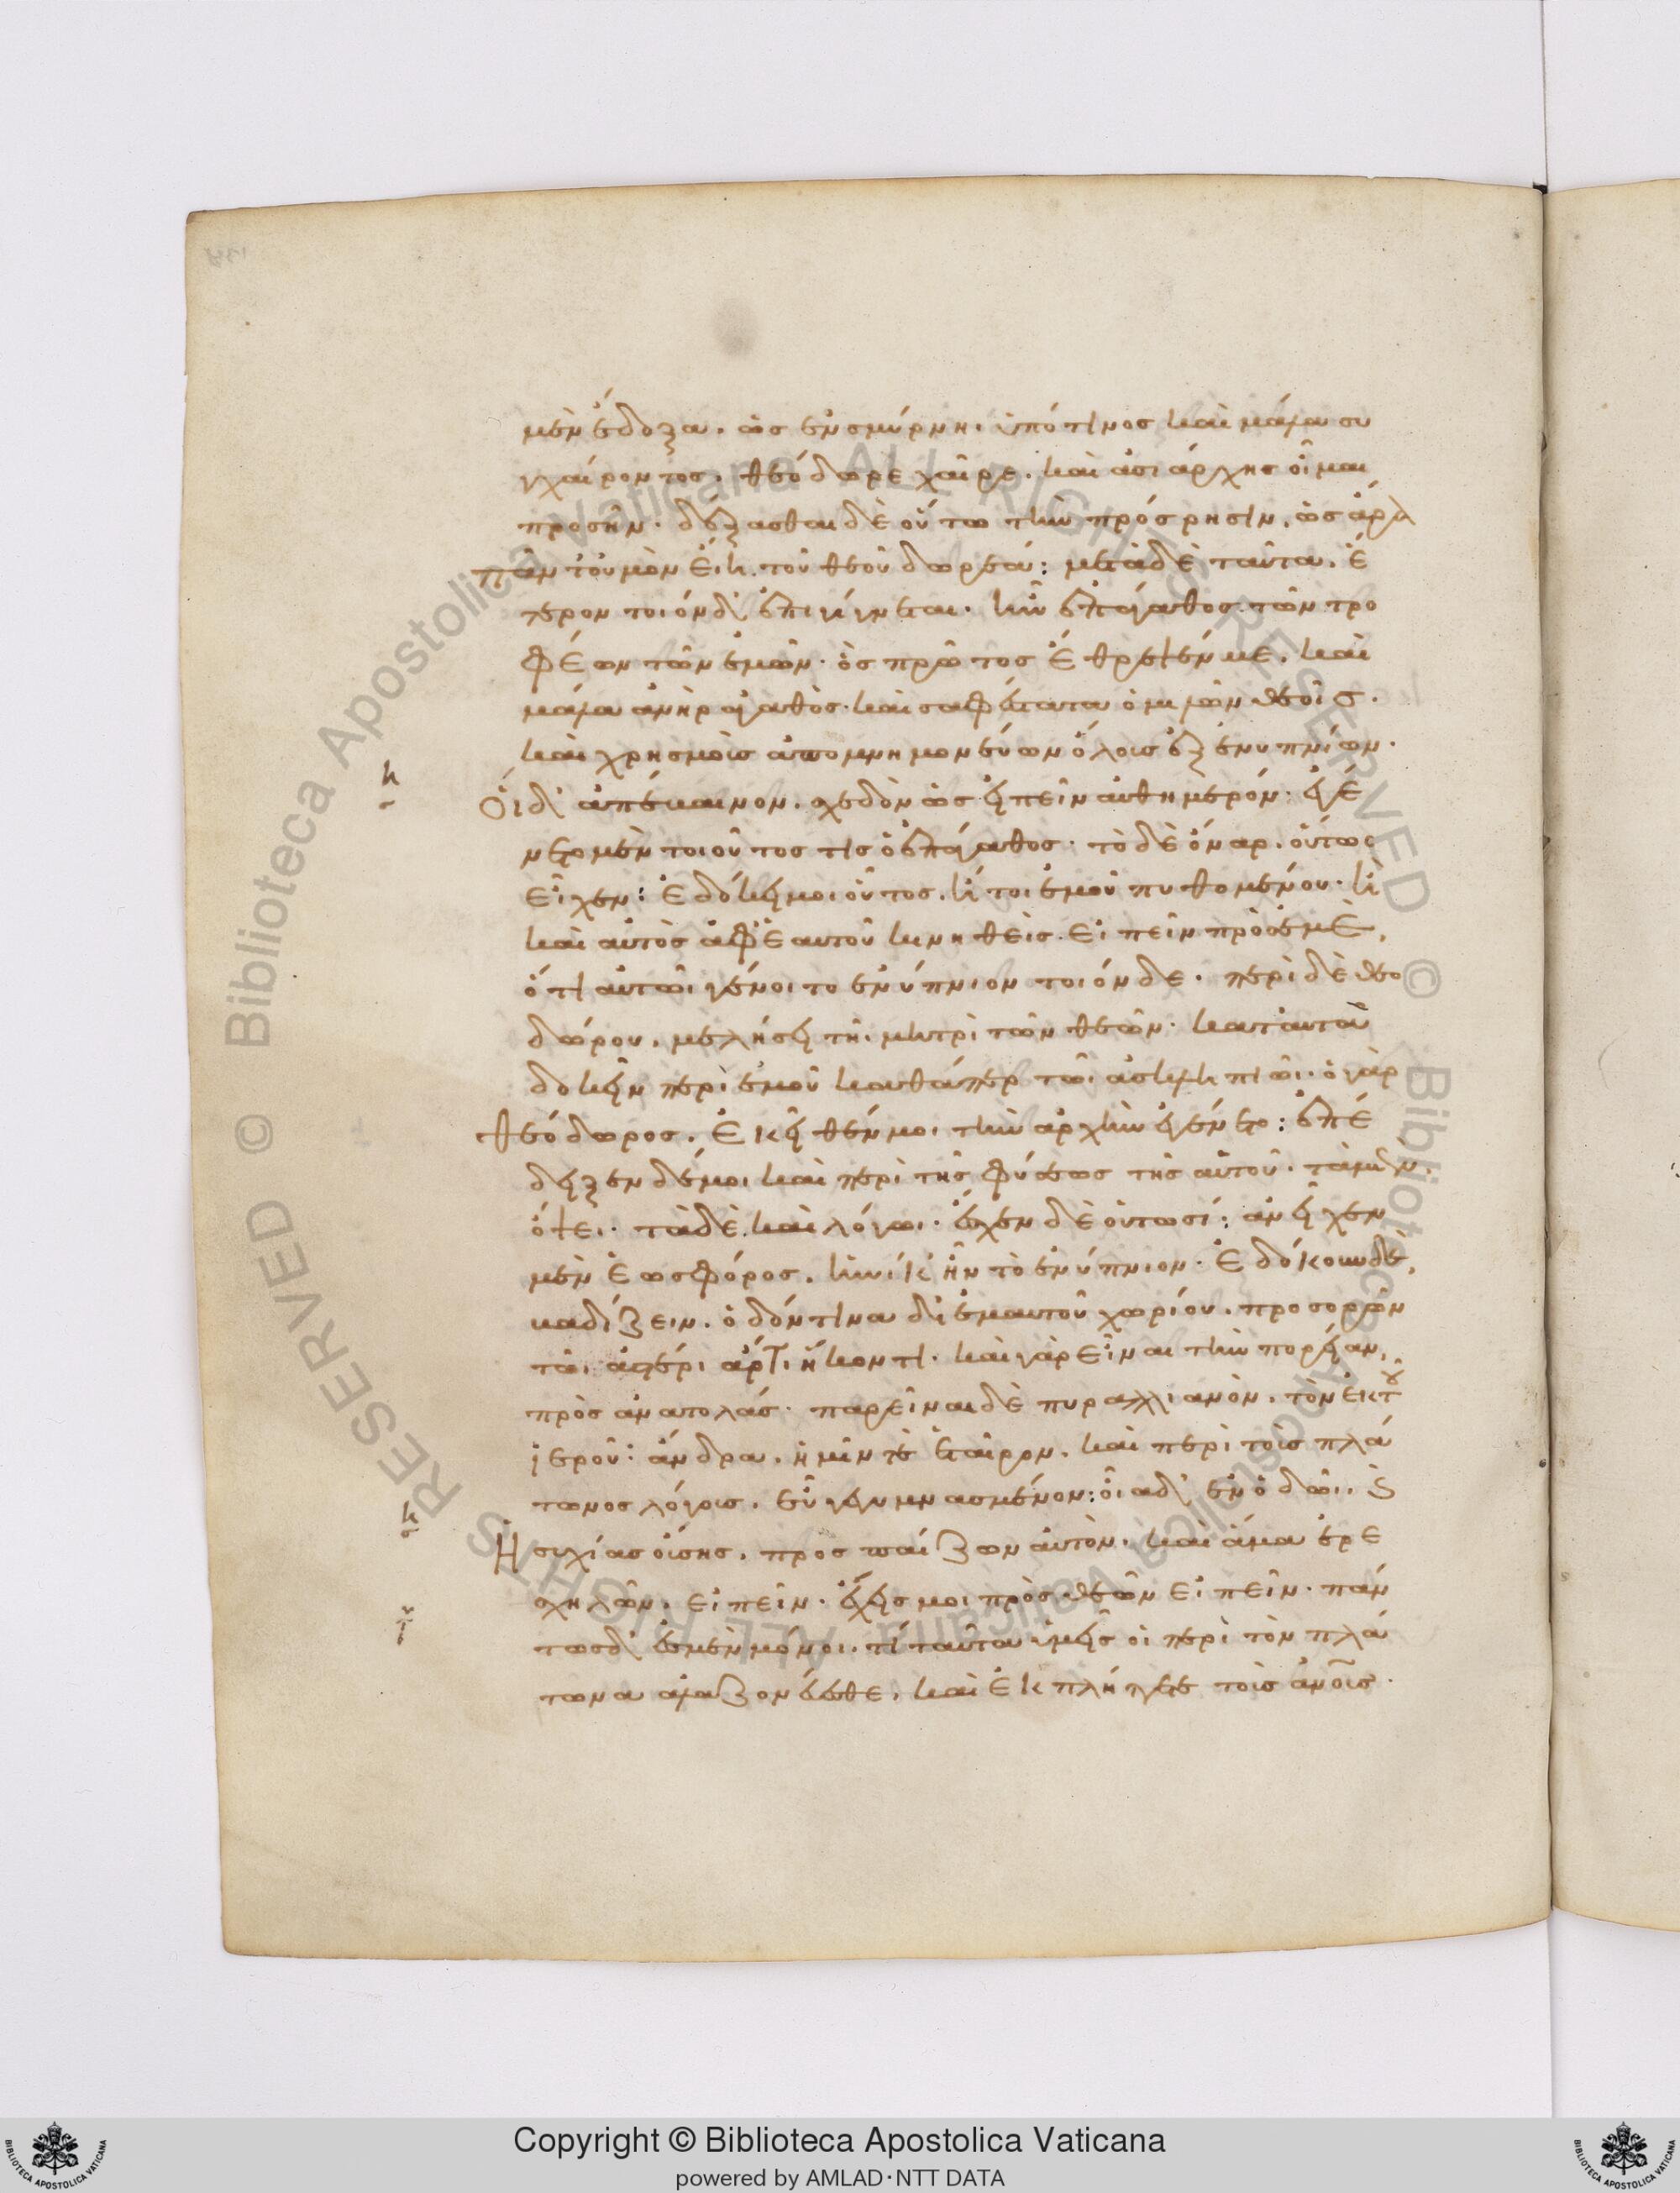 μὲν ἔδοξα. ὡς ἐν σμύρνηι ὑπό τινος καὶ μάλα συ
γχαίροντος. θεόδωρε χαῖρε. καὶ ἀσιάρχης οἶμαι
προσῆν. δέξασθαι δὲ οὕτω τὴν πρόσρησιν. ὡς ἄρα
πᾶν τοὐμὸν εἴη τοῦ θεοῦ δωρεά: μετὰ δὲ ταῦτα. ἕ
τερον τοιόνδ' ἐπιγίγνεται. ἦν ἐπάγαθος τῶν τρο
φέων τῶν ἐμῶν. ὃς πρῶτος ἔθρεψέν με. καὶ
μάλα ἀνὴρ ἀγαθὸς. καὶ σαφέστατα ὁμιλῶν θεοῖς.
καὶ χρησμοῖς ἀπομνημονεύων ὅλοις ἐξ ἐνυπνίων.
Οἱ δ' ἀπέβαινον. σχεδὸν ὡς εἰπεῖν αὐθημερόν. ἐγέ
νετο μὲν τοιοῦτος τις ὁ ἐπάγαθος. τὸ δὲ ὄναρ. οὕτως
εἶχεν: ἐδόκει μοι οὗτος. ἤτοι ἐμοῦ πυθομένου. ἢ
καὶ αὐτὸς ἀφ' ἑαυτοῦ κινηθεὶς εἰπεῖν πρὸς ἐμὲ,
ὅτι αὐτῶι γένοιτο ἐνύπνιον τοιόνδε. περὶ δὲ θεο
δώρου. μελήσει τῆι μητρὶ τῶν θεῶν. καὶ ταυτὰ
δοκεῖν περὶ ἐμοῦ καθάπερ τῶι ἀσκληπιῶι. ὁ γὰρ
θεόδωρος. ἐκεῖθέν μοι τὴν ἀρχὴν ἐγένετο: ἐπέ
δειξεν δέ μοι καὶ περὶ τῆς φύσεως τῆς αὑτοῦ. τὰ μὲν
ὄψει. τὰ δὲ καὶ λόγωι. εἶχεν δὲ οὑτωσί: ἀνεῖχεν
μὲν ἑωσφόρος. ἡνίκ' ἦν τὸ ἐνύπνιον. ἐδόκουν δὲ,
βαδίζειν. ὁδόν τινα δι' ἐμαυτοῦ χωρίου. προσορῶν
τῶι ἀστέρι ἄρτι ἥκοντι. καὶ γὰρ εἶναι τὴν πορείαν,
πρὸς ἀνατολάς. παρεῖναι δὲ πυραλλιανὸν. τὸν ἐκ τοῦ
ἱεροῦ: ἄνδρα. ἡμῖν τε ἑταῖρον. καὶ περὶ τοῖς πλά
τωνος λόγοις. εὖ γεγυμνασμένον: οἷα δ' ἐν ὁδῶι. ϗ
Ησυχίας οὔσης. προσπαίζων αὐτὸν. καὶ ἅμα ἐρε
σχηλῶν. εἰπεῖν. ἔχεις μοι πρὸς θεῶν εἰπεῖν. πάν
τως δ' ἐσμὲν μόνοι. τί ταῦτα ὑμεῖς οἱ περὶ τὸν πλά
τωνα ἀλαζονεύεσθε. καὶ ἐκπλήττετε τοὺς ἀνοῦς.